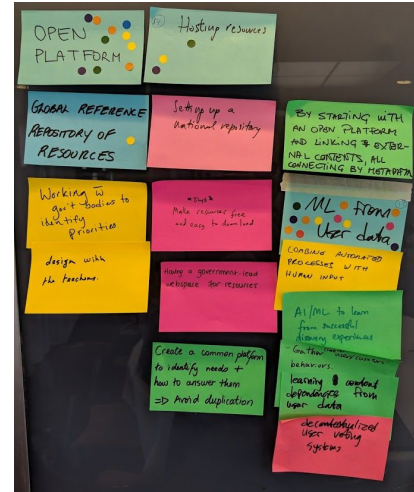 OPEN
PLATFORM
GLOBAL REFERENCE
REPOSITORY OF
RESOURCES
Working w̄
gov't bodies to
identify
priorities
design with
the teachers.
Hosting resources
Setting up a
national repository
Make resources free
and easy to download
Having a government-lead
webspace for resources
Create a common platform
to identify needs +
how to answer them
=> Avoid duplication
BY STARTING WITH
AN OPEN PLATFORM
AND LINKING EXTER-
NAL CONTENTS, ALL
CONNECTING BY METADATA
ML from
User data
COMBINING AUTOMATED
PROCESSES WITH
HUMAN INPUT
AI/ML to learn
from successful
discovery experiences
Gather
behaviors.
learning content
dependences from
user data
decontextualized
user voting
systems